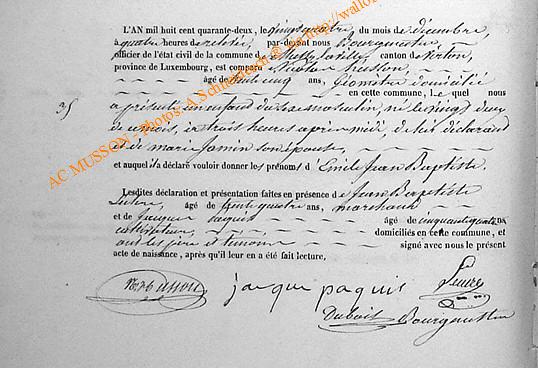 L'AN mil huit cent quarante-deux, le vingt quatre, du mois de décembre,
à quatre heures de relevée, par-devant nous Bourgmestre
officier de l'état civil de la commune de Musson, canton de Virton,
province de Luxembourg, est comparu
âgé de trente cinq ans, Géomètre domicilié
en cette commune, Lequel nous
a présenté un enfant du sexe masculin, né le vingt deux
de ce mois, à trois heures après midi, de lui déclarant
et de marie Jamin son épouse,
et auquel il a déclaré vouloir donner les prénoms d'Emile Jean Baptiste.
Lesdites déclaration et présentation faites en présence de Jean Baptiste
âgé de trente quatre ans, marchand
et de Jacques paquis âgé de cinquante quatre ans
cultivateur, domiciliés en cette commune, et
ont les père et témoins signé avec nous le présent
acte de naissance, après qu'il leur en a été fait lecture,
jacque paquis
Dubois Bourgmestre
AC MUSSON - Photos: A.Schmickrath © http://wallo